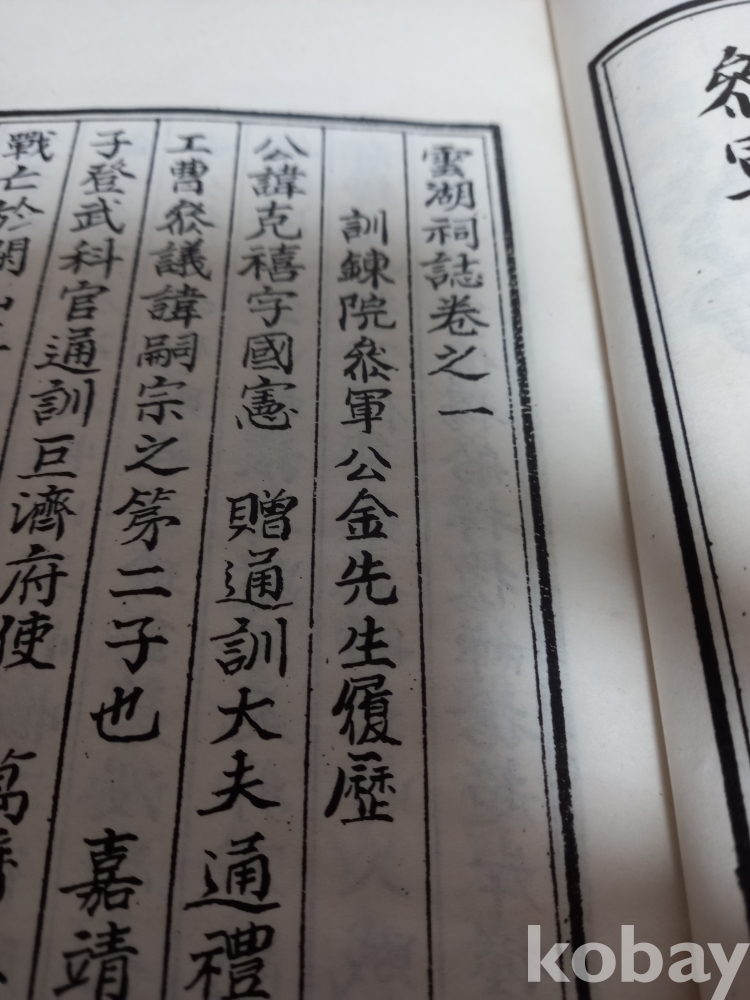 雲湖祠誌卷之一
訓鍊院叅軍公金先生履歷
公諱克禧字國憲 贈通訓大夫通禮
工曹叅議諱嗣宗之第二子也 嘉靖
子登武科官通訓巨濟府使 萬
戰亡於閑山
叅軍
kobay